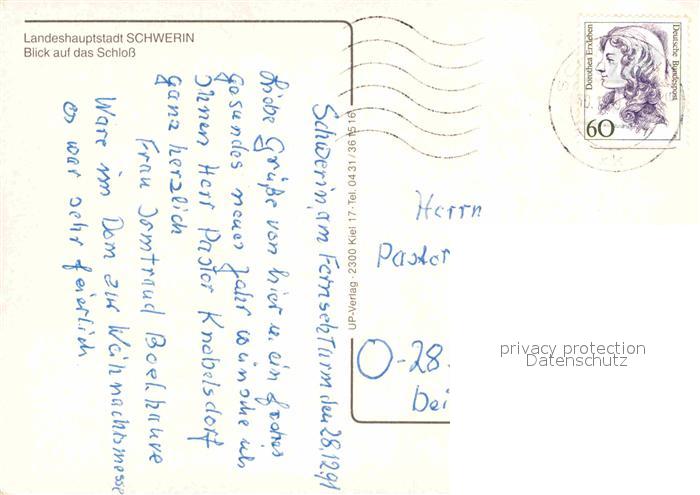 Landeshauptstadt SCHWERIN
Blick auf das Schloß
Schwerin, am Fernsehturm den 28.12.91
Liebe Grüße von hier u. ein
gesundes neues Jahr wünsche ich
Ihnen Herr Pastor Knobelsdorf
ganz herzlich
Frau Irmtraud
Ware im Dom zur Weihnachtsmesse
es war sehr feierlich.
UP-Verlag · 2300 Kiel 17 · Tel. 04 31 / 36 15 16
Dorothea Erxleben
Deutsche Bundespost
60
Herrn
Pastor
O-28
bei
privacy protection
Datenschutz